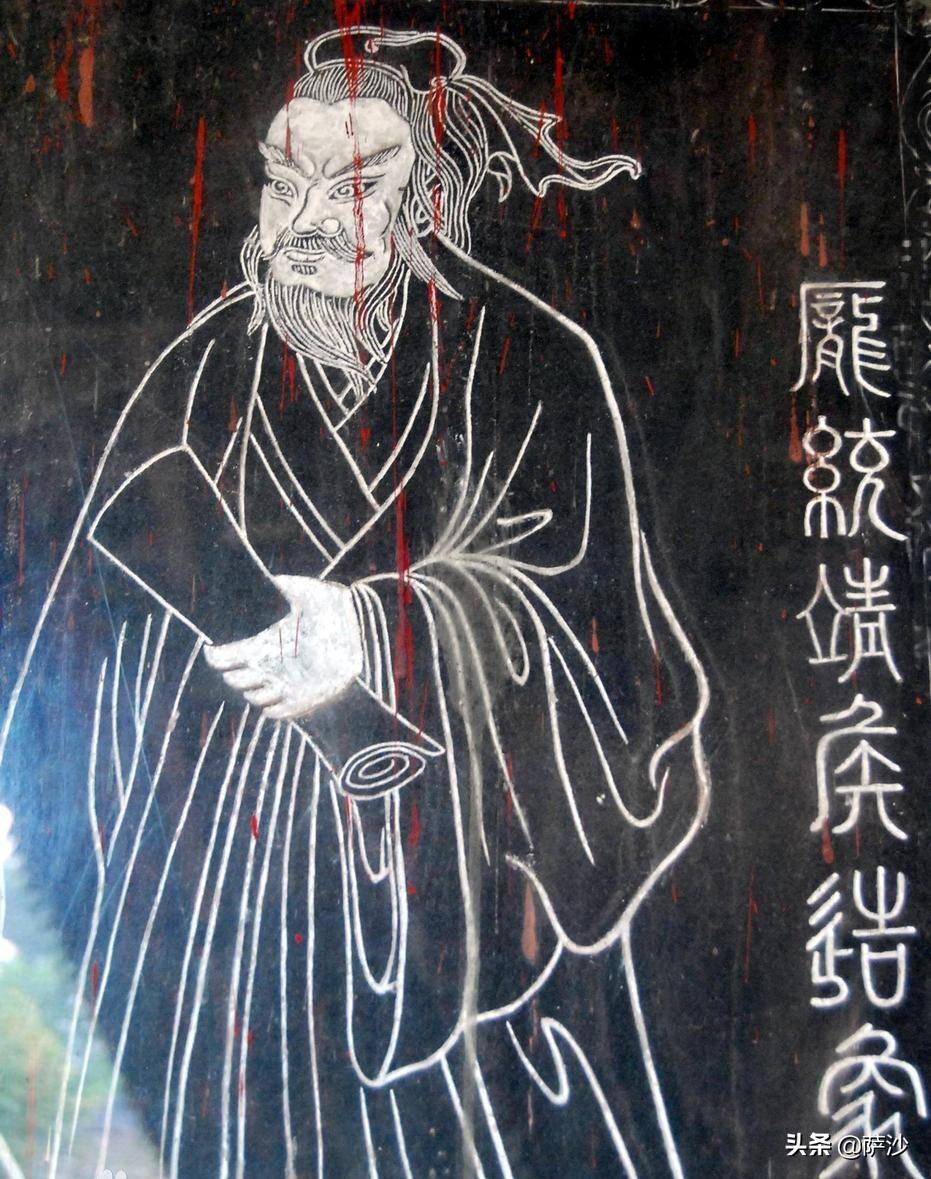 龐統靖侯造象
头条 @萨沙